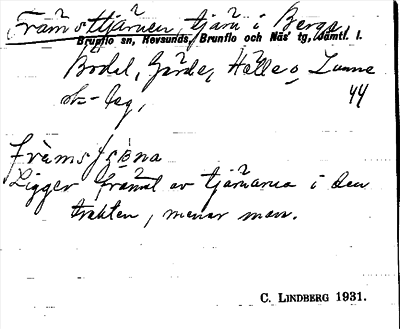 Främsttjärnen, tjärn i Bergs,
Brunflo sn, Revsunds, Brunflo och Näs' tg, Jämtl. l.
Bodel, Gärde, Hälle o. Lunne
sk-lag,
44
främsþɛ̀na
Ligger främst av tjärnarna i den
trakten, menar man.
C. LINDBERG 1931.